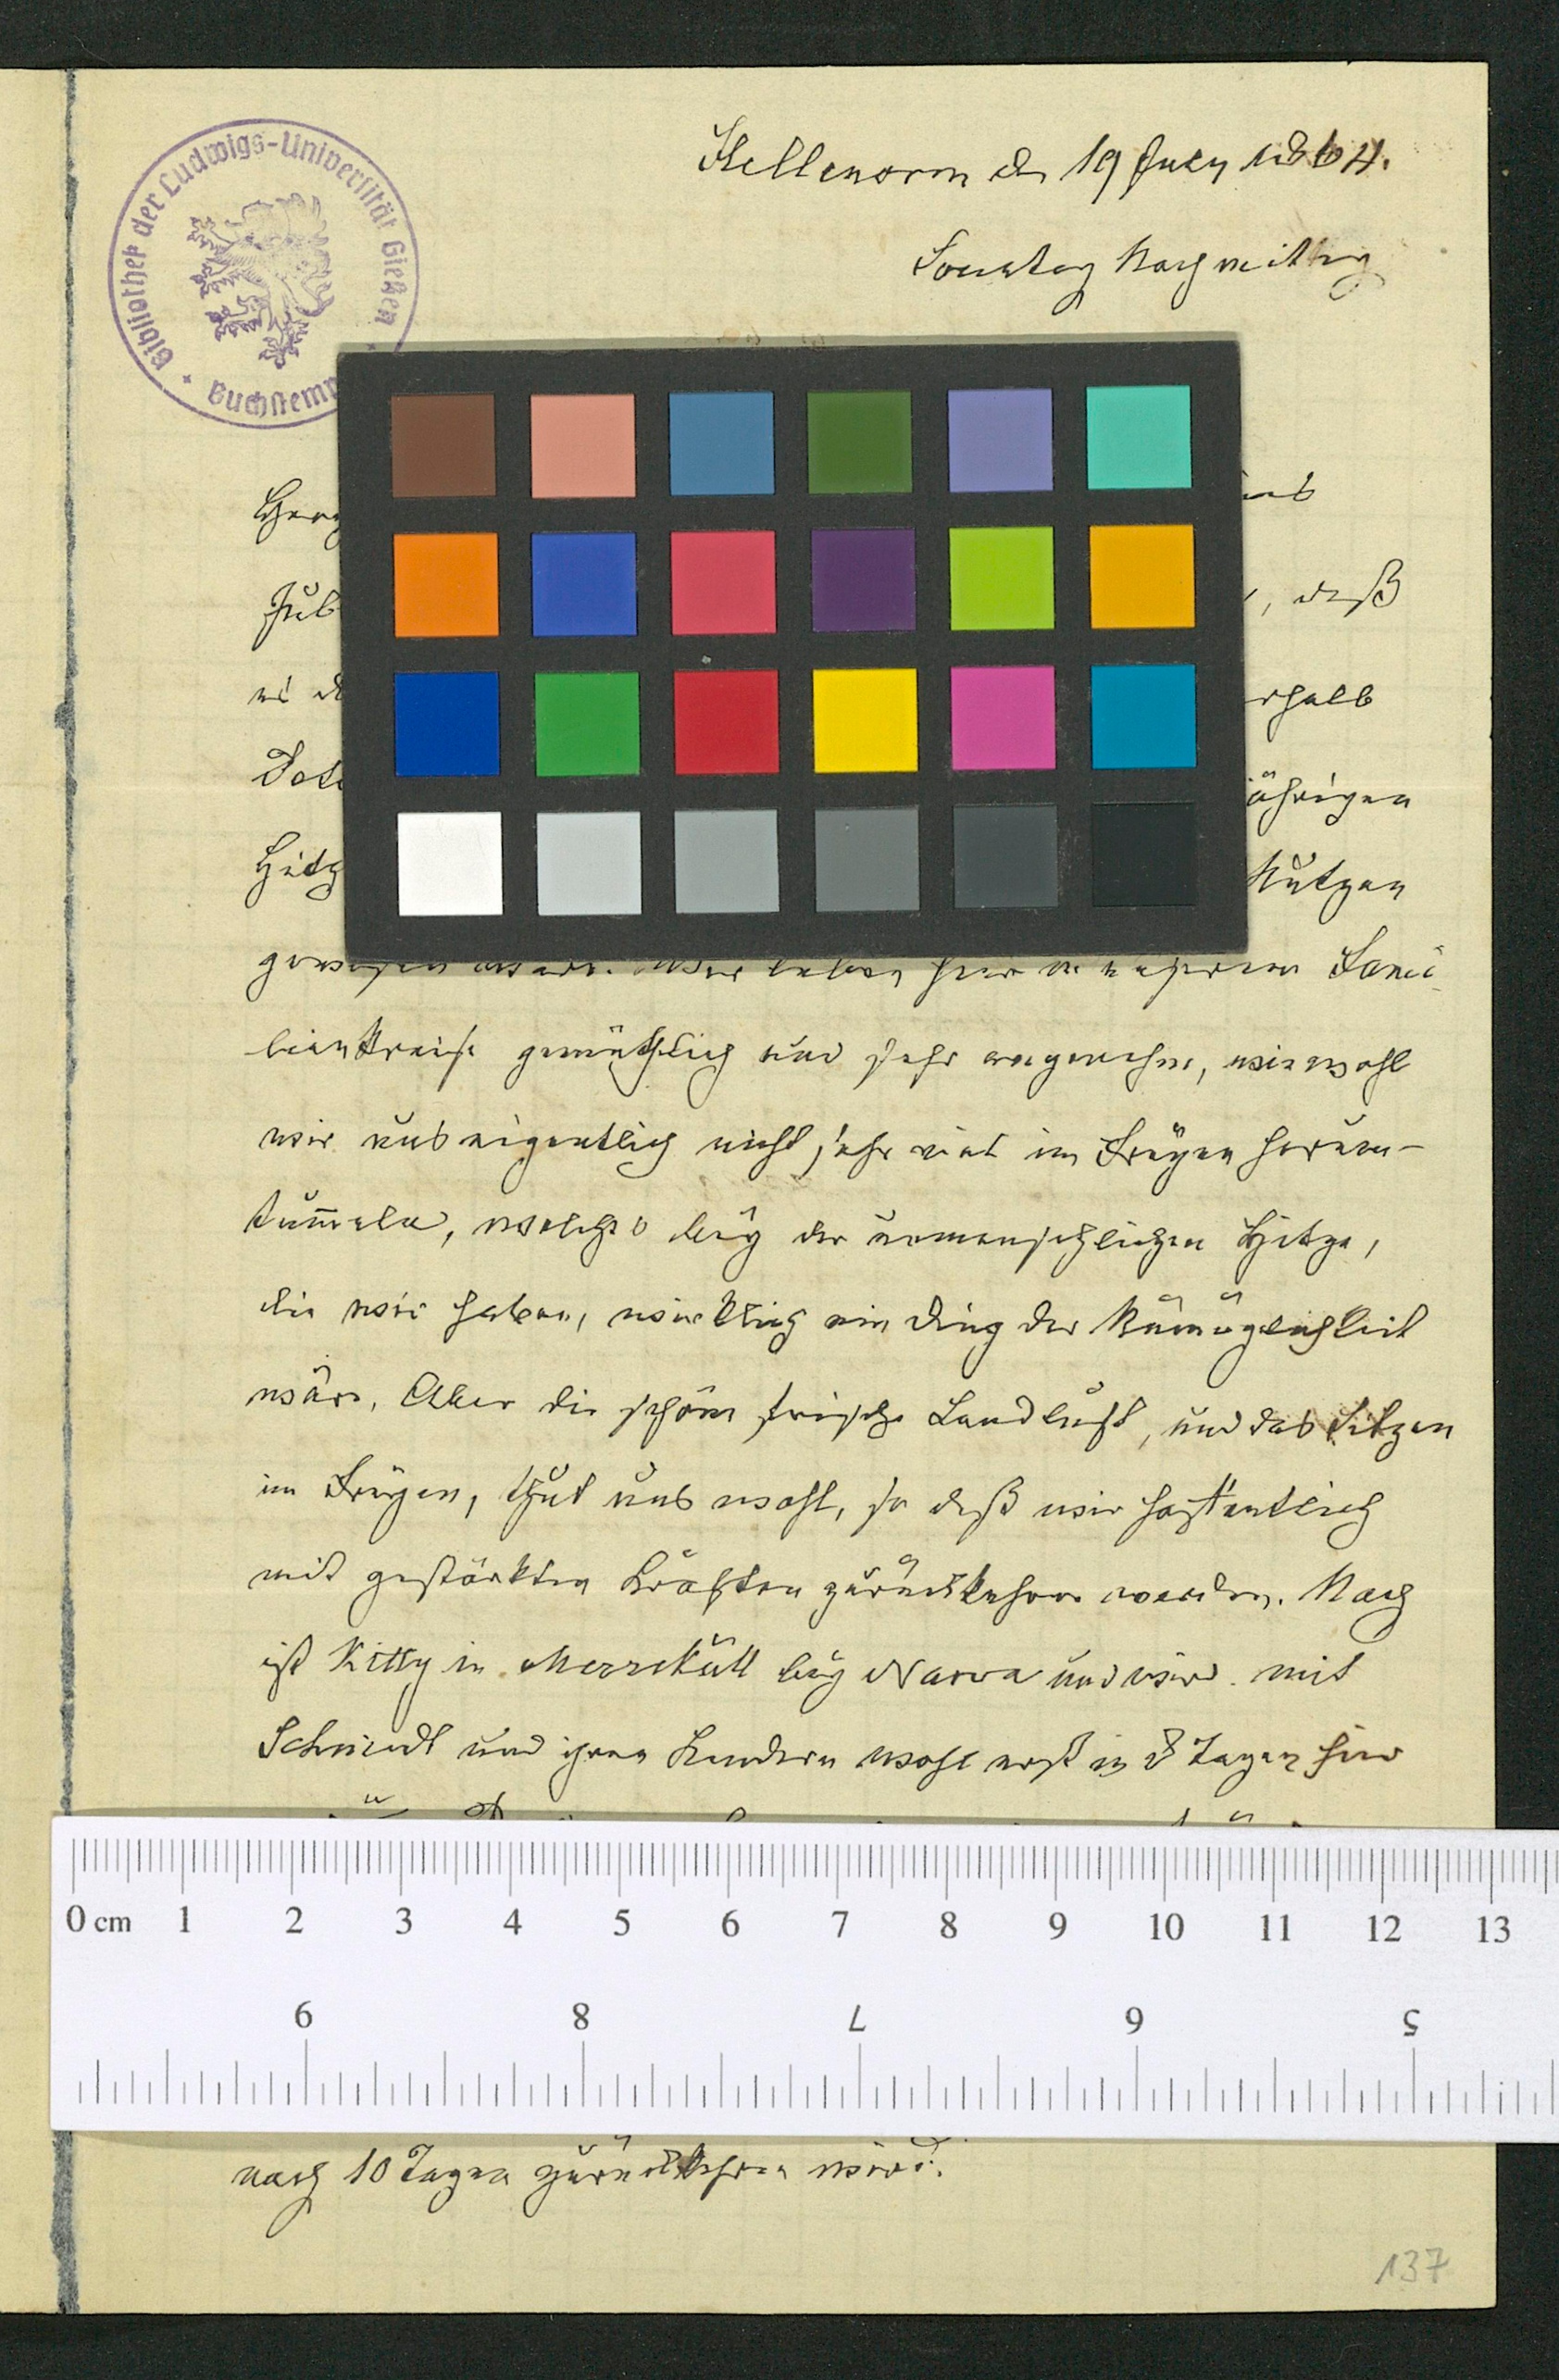 Bibliothek der Ludwigs-Universität Gießen
Buchstemp
Hellenorm d 19 July 1864.
Sonntag Nachmittag
uns
, daß
es
rhalb
ährigen
Hitz
Nutzen
gewesen wäre. Wir leben hier in unserem Fami
lienkreise gemüthlich und sehr angenehm, wiewohl
wir uns eigentlich nicht sehr viel im Freyen herum-
tummeln, welches bey der unmenschlichen Hitze,
die wir haben, wirklich ein Ding der Unmöglichkeit
wäre. Aber die schöne frische Landluft, und das Sitzen
im Freyen, thut uns wohl, so daß wir hoffentlich
mit gestärkten Kräften zurückkehren werden. Noch
ist Kitty in Merreküll bey Narva und wird mit
Schmidt und ihren Kindern wohl erst in 8 Tagen hier
0 cm 1 2 3 4 5 6 7 8 9 10 11 12 13
9 8 7 6 5
nach 10 Tagen zurückkehren wird.
137